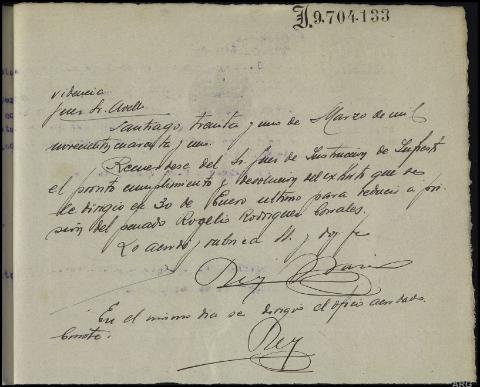 J.9.704.133
videncia
Juez Sr.
Santiago, treinta y uno de Marzo de mil
novecientos cuarenta y uno.
Recuerdese del Sr. Juez de Instruccion de Infiesto
el pronto cumplimiento y devolucion del exhorto que se
le dirigio en 30 de Enero ultimo para reducir a pri
sión del penado Rogelio Rodriguez Corrales.
Lo acordó y rubrica S. y doy fe
Rey
En el mismo dia se dirigio el oficio acordado.
Consta.
Rey
ARG